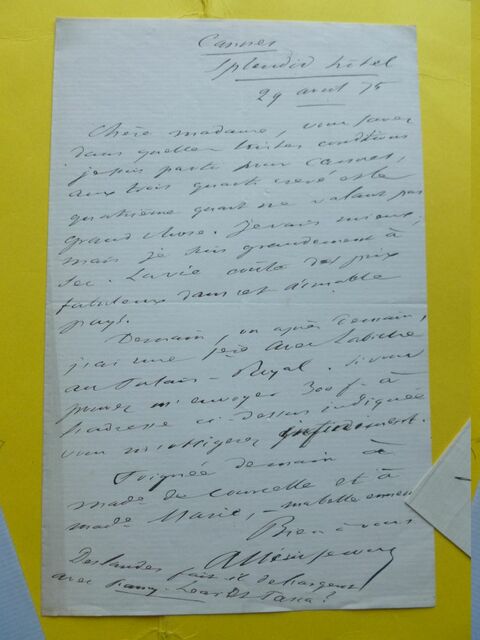 Cannes
Splendid hotel
29 avril 75
Chère madame, vous savez
dans quelles tristes conditions
je suis parti pour Cannes,
aux trois quarts crevé et le
quatrième quart ne valant pas
grand chose. Je vais mieux,
mais je suis grandement à
sec. La vie coûte des prix
fabuleux dans cet aimable
pays.
Demain, ou après demain,
j'ai une 1ère avec Labiche
au Palais-Royal. Si vous
pouvez m'envoyer 300 f. à
l'adresse ci-dessus indiquée
vous m'obligerez infiniment.
Poignée de main à
made de Courcelle et à
made Marie, ma belle ennemie
Bien à vous
Deslandes fait il de l'argent
avec